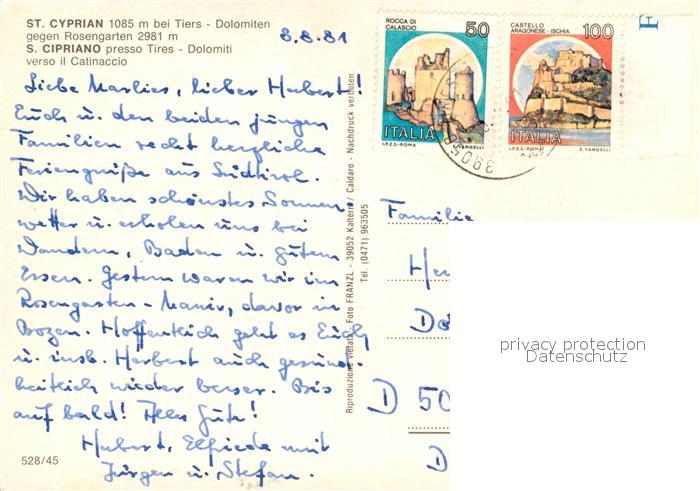 ST. CYPRIAN 1085 m bei Tiers - Dolomiten
gegen Rosengarten 2981 m
S. CIPRIANO presso Tires - Dolomiti
verso il Catinaccio
8.8.81
Liebe Marlies, lieber Hubert!
Euch u. den beiden jungen
Familien recht herzliche
Feriengrüße aus Südtirol.
Wir haben schönstes Sonnen-
wetter u. erholen uns bei
Wandern, Baden u. gutem
Essen. Gestern waren wir im
Rosengarten - Massiv, davor in
Bozen. Hoffentlich geht es Euch
u. insb. Herbert auch gesund-
heitlich wieder besser. Bis
auf bald! Alles Gute!
Hubert, Elfriede mit
Jürgen u. Stefan.
528/45
Riproduzione vietata - Foto FRANZL - 39052 Kaltern / Caldaro - Nachdruck verboten
Tel. (0471) 963505
ROCCA DI
CALASCIO
50
ITALIA
I.P.Z.S.-ROMA E. VANGELLI
CASTELLO
ARAGONESE - ISCHIA
100
ITALIA
I.P.Z.S.-ROMA E. VANGELLI
Familie
He
D 50
D
privacy protection
Datenschutz